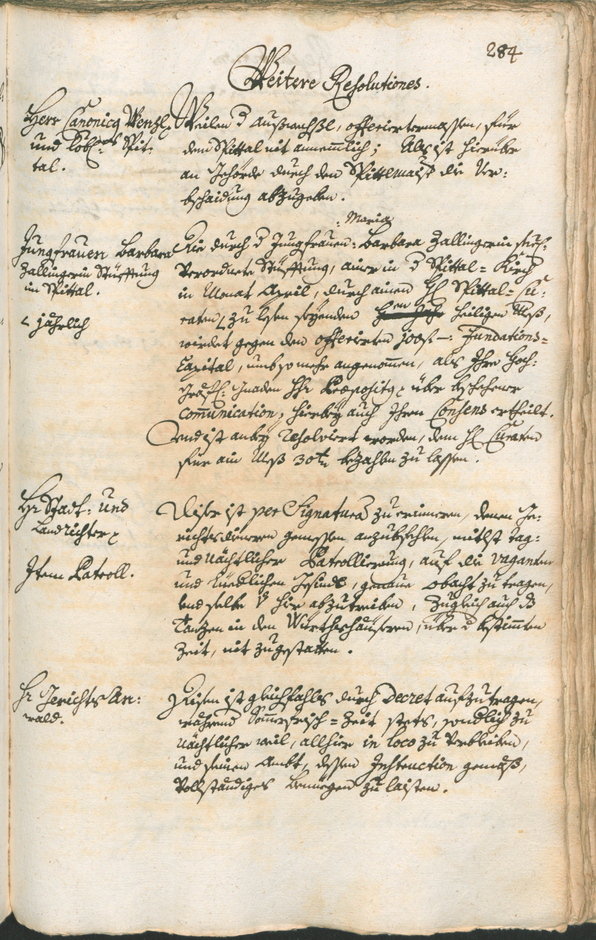 284
Weitere Resolutiones.
Herr Canonicg Wenzl
und Löbl: Spit-
tal.
Weilen d außwechßl, offerirtermassen, für
dem Spittal nit annemlich; Als ist hierüber
an Gehörde durch den Spittlmaist die Ver-
bschaidung abzugeben.
Maria
Jungfrauen Barbara
Zallingerin Stüfftung
im Spittal.
jährlich
Die durch d Jungfrauen: Barbara Zallingerin
verordnete Stüfftung, ainer in d Spittal-Kirch
in Monat April, durch ainen H Spittal-Cu-
raten, zu lesen heiligen Mess,
wirdet gegen dem offerirten Fundations-
Capital, umb so mehr angenommen, als Ihre Hoch-
Gräfl: Gnaden H: Præposity, über beschechene
communication, hierbey auch Ihren Consens ertheilt.
Und ist anbey resolvirt worden, dem H: Curaten
für ain Mess 30 bezahlen zu lassen.
Hr Statt- und
Landrichter
Item Patroll.
Diser ist per Signatura zu erinneren, denen Ge-
richtsdieneren gemessen anzubefehlen, mitlst tag-
und nächtlicher Patrollierung, auf die vaganten
und Gesind, genaue obacht zu tragen,
hier abzutreiben, zugleich auch
Tantzen in den Würthshäuseren, über d bestimmten
Zeit, nit zugestatten.
Hr Gerichts An-
wald.
Disen ist gleichfahls durch Decret aufzutragen,
während Sommerfrisch-Zeit stets, zu
nächtlicher weil, allhier in loco zu verbleiben,
und seinem Ambt, dessen Instruction gemäß,
vollständiges benüegen zu laisten.